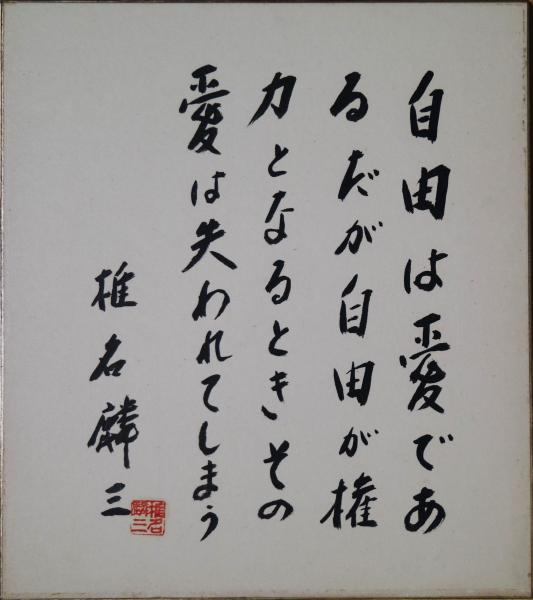 自由は愛であ
るだが自由が権
力となるときその
愛は失われてしまう
椎名麟三
椎名
麟三